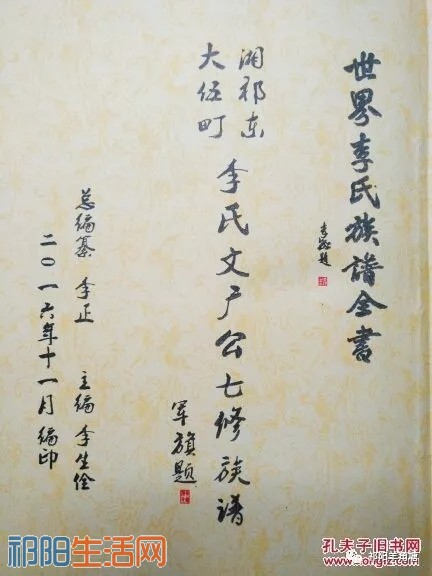 世界李氏族谱全書
题
湘祁东
大伍町
李氏文公七修族谱
军旗题
总编纂 李正 主编 李生佺
二〇一六年十一月编印
祁阳生活网
孔夫子旧书网